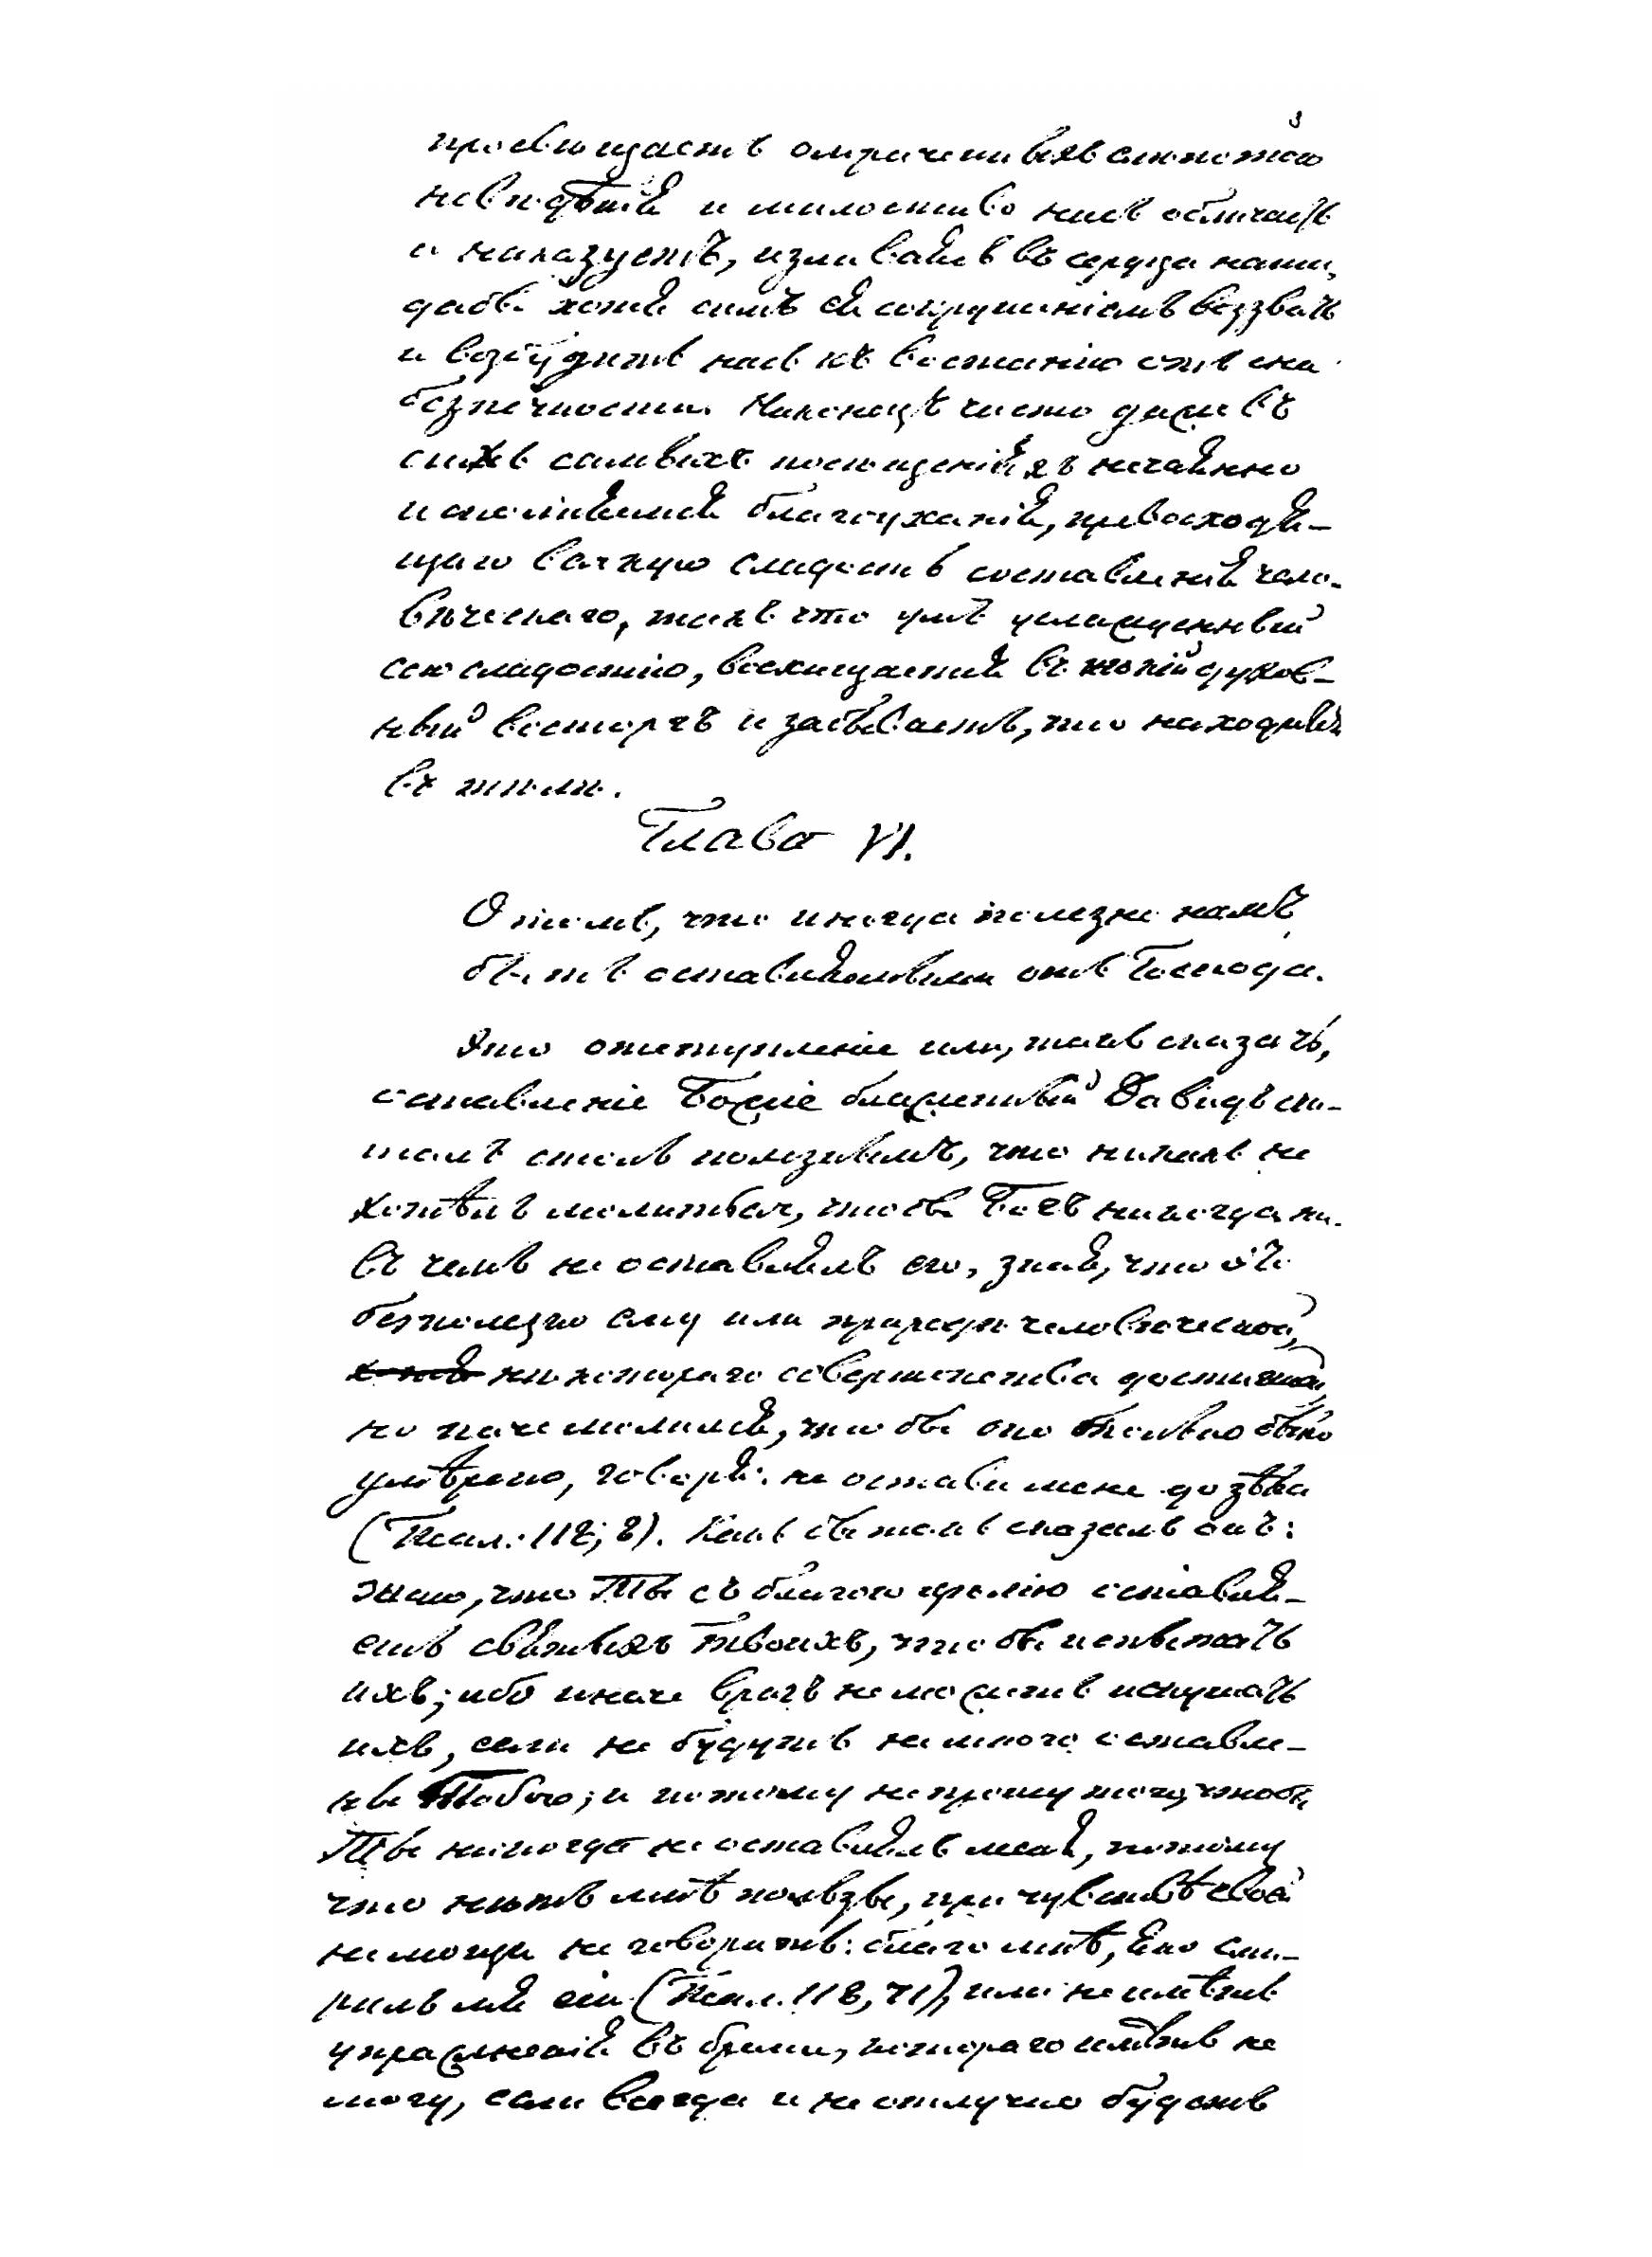 3
просвѣщаетъ омраченныхъ слѣпотою
невѣдѣнія и милостиво насъ обличаетъ
и наказуетъ, изливаясь въ сердца наши,
дабы хотя симъ сокрушеніемъ воззвать
и возбудить насъ къ востанію отъ сна
безпечности. Наконецъ часто даже въ
сихъ самыхъ посѣщеніяхъ нечаянно
исполняемся благоуханія, превосходя-
щаго всякую сладость составленія чело-
вѣческаго, такъ что умъ услажденный
сею сладостію, восхищается въ нѣкій духов-
ный восторгъ и забываетъ, что находится
въ тѣлѣ.
Глава VI.
О томъ, что иногда полезно намъ
быть оставляемыми отъ Господа.
Это отступленіе или, такъ сказать,
оставленіе Божіе блаженный Давидъ счи-
талъ столь полезнымъ, что никакъ не
хотѣлъ молиться, чтобы Богъ никогда ни
въ чемъ не оставлялъ его, зная, что это
безполезно ему или природѣ человѣческой,
никотораго совершенства достигшей,
но паче молился, чтобы оно только было
умѣрено, говоря: не остави мене до зѣла
(Псал. 118; 8). Какъ бы такъ сказалъ онъ:
знаю, что Ты съ благою цѣлію оставля-
ешь святыхъ Твоихъ, чтобы испытать
ихъ; ибо иначе врагъ не можетъ искушать
ихъ, если не будутъ немного оставле-
ны Тобою; и потому не прошу того, чтобы
Ты никогда не оставлялъ меня, потому
что нѣтъ мнѣ пользы, при чувствѣ своей
немощи не говорить: благо мнѣ, яко сми-
рилъ мя еси (Псал. 118, 71), или не имѣть
упражненія въ брани, котораго имѣть не
могу, если всегда и неотлучно будетъ